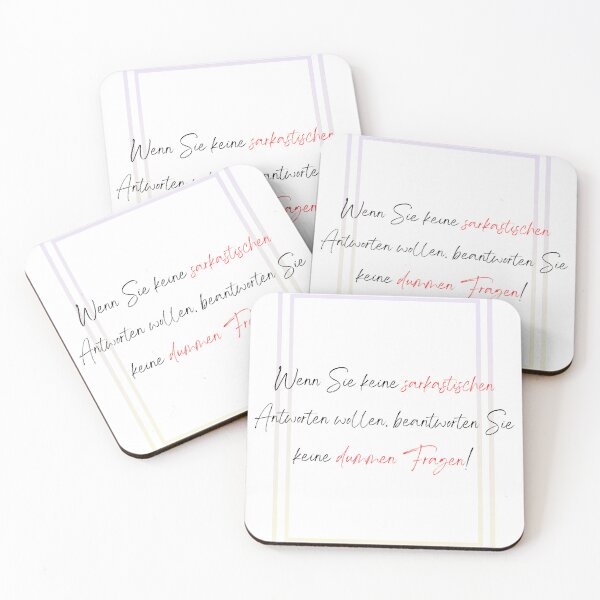 Wenn Sie keine sarkastischen
Antworten antworten
Fragen
Wenn Sie keine sarkastischen
Antworten wollen, beantworten Sie
keine dummen Fragen!
Wenn Sie keine sarkastischen
Antworten wollen, beantworten Sie
keine dummen F
Wenn Sie keine sarkastischen
Antworten wollen, beantworten Sie
keine dummen Fragen!